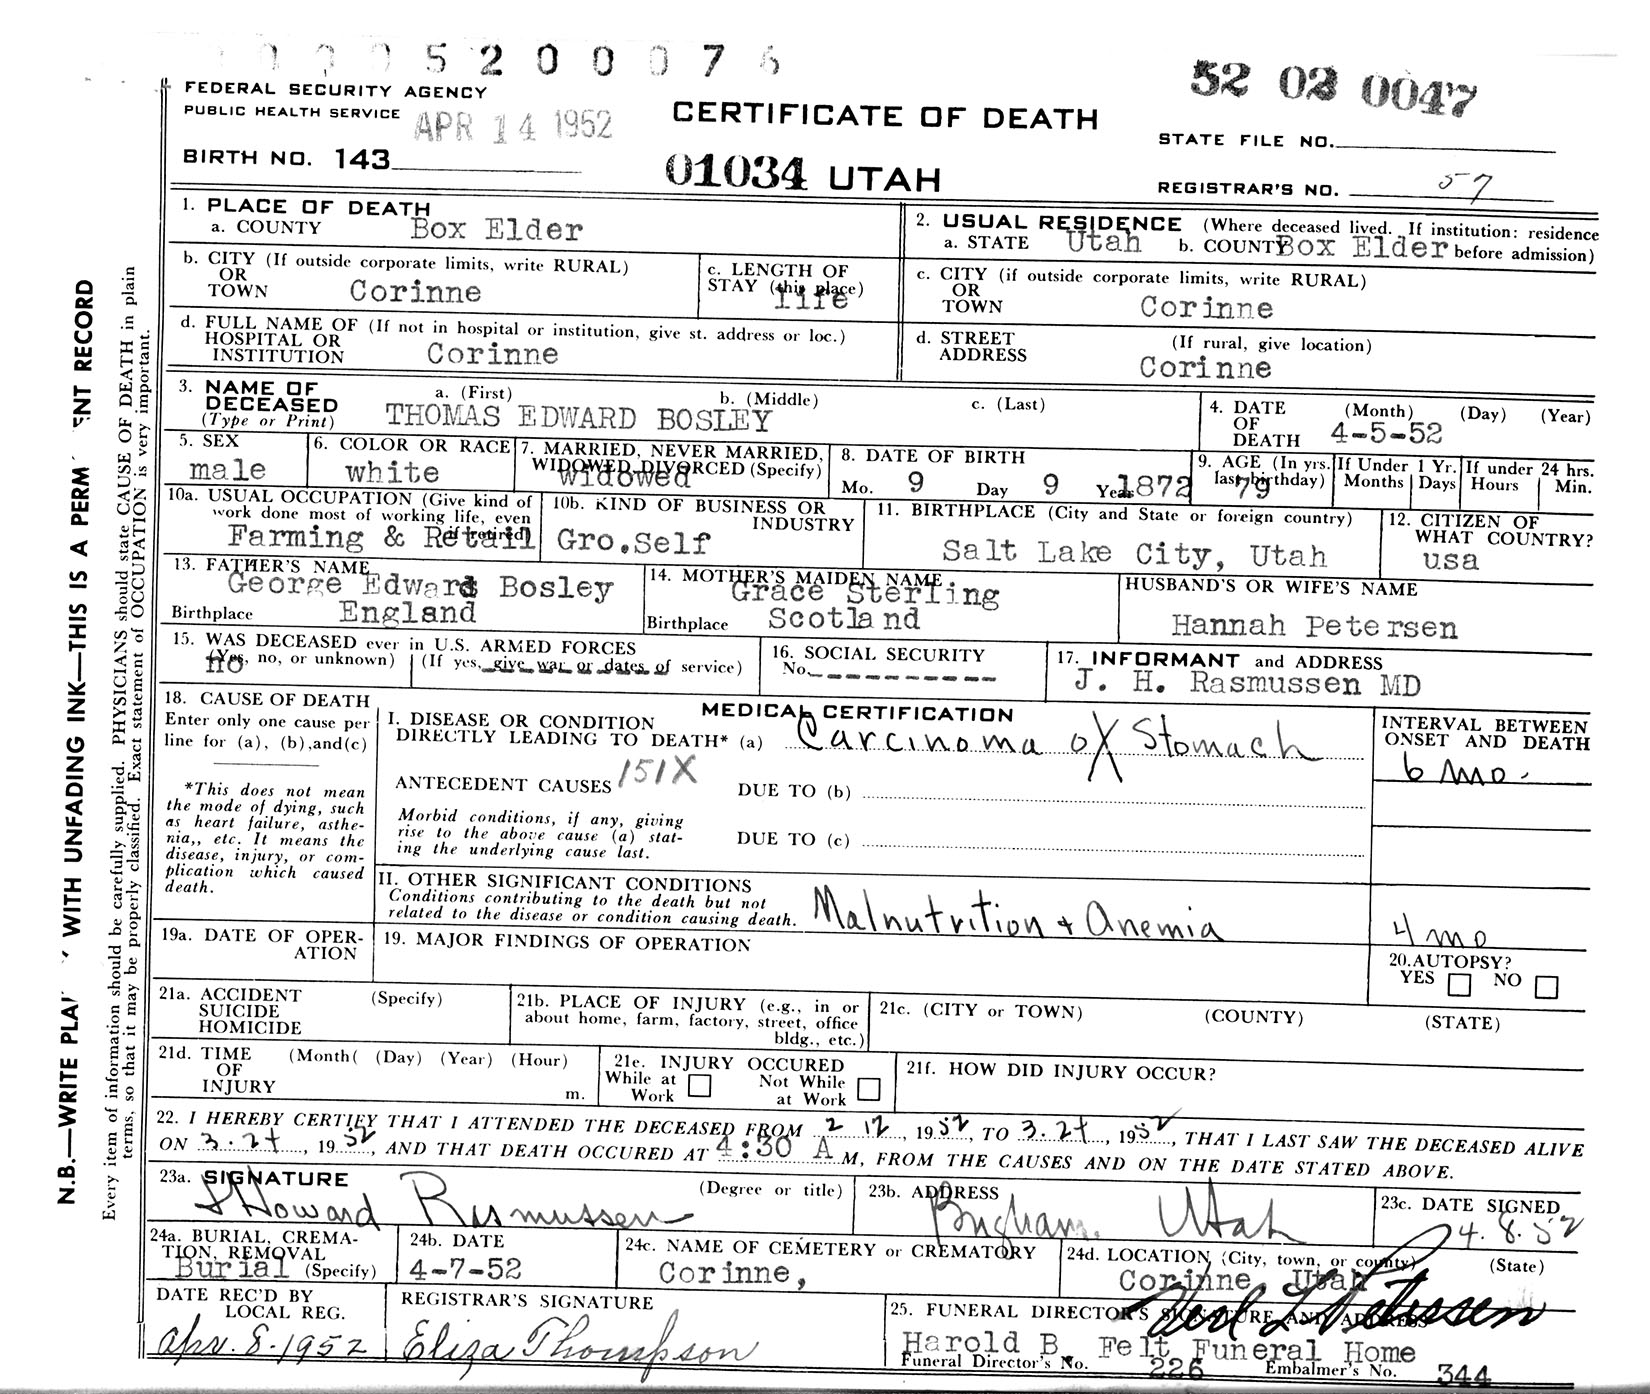 0005200076
52 02 0047
FEDERAL SECURITY AGENCY
PUBLIC HEALTH SERVICE
APR 14 1952
CERTIFICATE OF DEATH
STATE FILE NO.
BIRTH NO. 143
01034 UTAH
REGISTRAR'S NO. 57
1. PLACE OF DEATH
a. COUNTY Box Elder
2. USUAL RESIDENCE (Where deceased lived. If institution: residence
a. STATE Utah b. COUNTY Box Elder before admission)
b. CITY (If outside corporate limits, write RURAL)
OR
TOWN Corinne
c. LENGTH OF
STAY (this place)
life
c. CITY (if outside corporate limits, write RURAL)
OR
TOWN Corinne
d. FULL NAME OF (If not in hospital or institution, give st. address or loc.)
HOSPITAL OR
INSTITUTION Corinne
d. STREET (If rural, give location)
ADDRESS Corinne
3. NAME OF a. (First) b. (Middle) c. (Last)
DECEASED
(Type or Print) THOMAS EDWARD BOSLEY
4. DATE (Month) (Day) (Year)
OF
DEATH 4-5-52
5. SEX
male
6. COLOR OR RACE
white
7. MARRIED, NEVER MARRIED,
WIDOWED, DIVORCED (Specify)
widowed
8. DATE OF BIRTH
Mo. 9 Day 9 Year 1872
9. AGE (In yrs.
last birthday)
79
If Under 1 Yr.
Months Days
If under 24 hrs.
Hours Min.
10a. USUAL OCCUPATION (Give kind of
work done most of working life, even
if retired)
Farming & Retail
10b. KIND OF BUSINESS OR
INDUSTRY
Gro.Self
11. BIRTHPLACE (City and State or foreign country)
Salt Lake City, Utah
12. CITIZEN OF
WHAT COUNTRY?
usa
13. FATHER'S NAME
George Edward Bosley
Birthplace England
14. MOTHER'S MAIDEN NAME
Grace Sterling
Birthplace Scotland
HUSBAND'S OR WIFE'S NAME
Hannah Petersen
15. WAS DECEASED ever in U.S. ARMED FORCES
(Yes, no, or unknown) (If yes, give war or dates of service)
no
16. SOCIAL SECURITY
No.
17. INFORMANT and ADDRESS
J. H. Rasmussen MD
18. CAUSE OF DEATH
Enter only one cause per
line for (a), (b),and(c)
*This does not mean
the mode of dying, such
as heart failure, asthe-
nia,, etc. It means the
disease, injury, or com-
plication which caused
death.
MEDICAL CERTIFICATION
I. DISEASE OR CONDITION
DIRECTLY LEADING TO DEATH* (a) Carcinoma of Stomach
INTERVAL BETWEEN
ONSET AND DEATH
6 mo.
ANTECEDENT CAUSES 151X DUE TO (b)
Morbid conditions, if any, giving
rise to the above cause (a) stat-
ing the underlying cause last.
DUE TO (c)
II. OTHER SIGNIFICANT CONDITIONS
Conditions contributing to the death but not
related to the disease or condition causing death.
Malnutrition + Anemia
4 mo
19a. DATE OF OPER-
ATION
19. MAJOR FINDINGS OF OPERATION
20.AUTOPSY?
YES NO
21a. ACCIDENT (Specify)
SUICIDE
HOMICIDE
21b. PLACE OF INJURY (e.g., in or
about home, farm, factory, street, office
bldg., etc.)
21c. (CITY or TOWN) (COUNTY) (STATE)
21d. TIME (Month( (Day) (Year) (Hour)
OF
INJURY m.
21e. INJURY OCCURED
While at Work Not While at Work
21f. HOW DID INJURY OCCUR?
22. I HEREBY CERTIFY THAT I ATTENDED THE DECEASED FROM 2 12, 1952, TO 3.27, 1952, THAT I LAST SAW THE DECEASED ALIVE
ON 3.27, 1952, AND THAT DEATH OCCURED AT 4:30 A M, FROM THE CAUSES AND ON THE DATE STATED ABOVE.
23a. SIGNATURE (Degree or title)
J Howard Rasmussen
23b. ADDRESS
Brigham, Utah
23c. DATE SIGNED
4.8.52
24a. BURIAL, CREMA-
TION, REMOVAL
Burial (Specify)
24b. DATE
4-7-52
24c. NAME OF CEMETERY or CREMATORY
Corinne,
24d. LOCATION (City, town, or county) (State)
Corinne, Utah
DATE REC'D BY
LOCAL REG.
Apr. 8. 1952
REGISTRAR'S SIGNATURE
Eliza Thompson
25. FUNERAL DIRECTOR'S SIGNATURE AND ADDRESS
Harold B. Felt Funeral Home
Funeral Director's No. 226 Embalmer's No. 344
N.B.—WRITE WITH UNFADING INK—THIS IS A RECORD
Every item of information should be carefully supplied. PHYSICIANS should state CAUSE OF DEATH in plain
terms, so that it may be properly classified. Exact statement of OCCUPATION is very important.